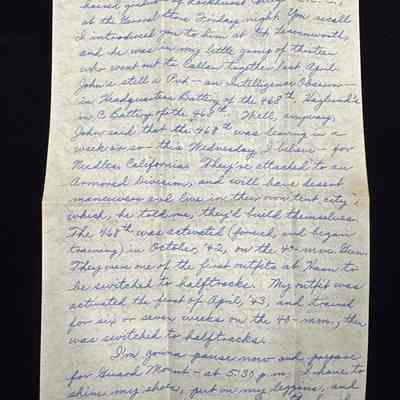 at the Service Club Friday night. You recall
I introduced you to him at Ft. Leavenworth,
and he was in my little group of thirteen
who went out to Callan together last April.
John's still a Pvt — an Intelligence Observer —
in Headquarters Battery of the 468th. Haglund's
in C Battery of the 468th. Well, anyway,
John said that the 468th was leaving in a
week or so - this Wednesday, I believe - for
Needles, California. They're attached to an
Armored Division, and will have desert
maneuvers and live in their own tent city,
which, he told me, they'd build themselves.
The 468th was activated (formed, and began
training) in October, '42, on the 40-mm. Gun.
They were one of the first outfits at Haan to
be switched to halftracks. My outfit was
activated the first of April, '43, and trained
for six or seven weeks on the 40-mm., then
was switched to halftracks.
I'm gonna pause now and prepare
for Guard Mount - at 5:30 p.m. I have to
shine my shoes, put on my leggins, and